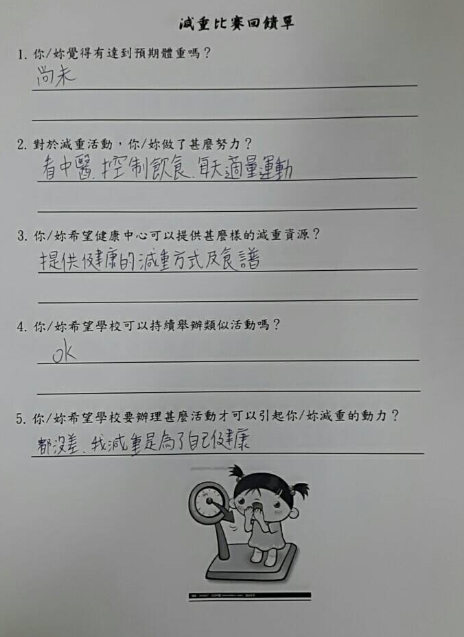 減重比賽回饋單
1. 你/妳覺得有達到預期體重嗎？
尚未
2. 對於減重活動，你/妳做了甚麼努力？
看中醫、控制飲食、每天適量運動
3. 你/妳希望健康中心可以提供甚麼樣的減重資源？
提供健康的減重方式及食譜
4. 你/妳希望學校可以持續舉辦類似活動嗎？
ok
5. 你/妳希望學校要辦理甚麼活動才可以引起你/妳減重的動力？
都沒差、我減重是為了自己健康